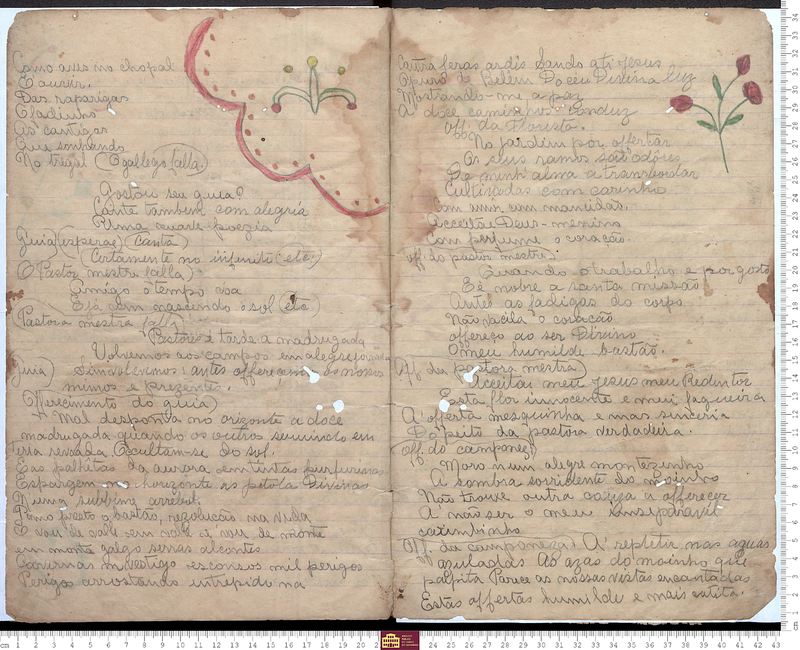 Como aves no chopal
E ouvir.
Das raparigas
E ladinho
As cantigas
Que sombando
No tregal (O gallego falla)
Gostou seu guia?
Cante tambem com alegria
Uma quare poezia
Guia (esperae) (canta)
Certamente no infinito (etc;)
(O Pastor mestre falla)
Amigo o tempo voa
E já vem nascendo o sol (etc)
(Pastora mestra falla)
Pastores é tarde a madrugada
Volvemos aos campos em alegre jornada
Guia) Sim volvemos: antes offereçamos os nossos
mimos e prezente.
(Offerecimento do guia)
Mal desponta no orizonte a doce
madrugada quando os outros semincto em
terra resvada Ocultam-se do sol.
E as palhêtas da aurora em tintas purpurinas
Espargem no horizonte as pétola Divinas
N'uma rubbina arrebol.
Tomo presto o bastão, rezolução na vida
E vou de vale em vale e vou de monte
em monte galgo serras alcontes
Cavernas investigo esconsos mil perigos
Perigos arrostando intrepido na
Contra feras ardis Sando a ti Jesus
O puro de Belém Do ceu Divina Luz
Mostrando-me a paz
A doce caminhos conduz
Off. da Florista.
No Jardim por offertar
Os seus ramos são odôres
De minh'alma a transbordar
Cultivadas com carinho
Com mim com mancidas.
Acceitae Deus-menino
Com perfume o coração.
Off. do pastor mestre:
Quando o trabalho e por gosto
E é nobre a santa missão
Antes as fadigas do corpo
Não vacila o coração
offereço ao ser Divino
O meu humilde bastão.
Off. da pastora mestra)
Acceitai meu Jesus meu Redentor
Esta flor innocente e mui fagueira
A offerta mesquinha e mas sinceria
Do peito da pastora verdadeira.
Off. do camponez:
Moro n'um alegre montezinho
A sombra sorridente do moinho
Não trouxe outra couza a offerecer
A não ser o meu inseparavel
cazimbinho
Off. da camponeza) A' repletir nas aguas
azuladas As azas do moinho que
palpita Parece as nossas vistas encantadas
Estas offertas humilde e mais catita.